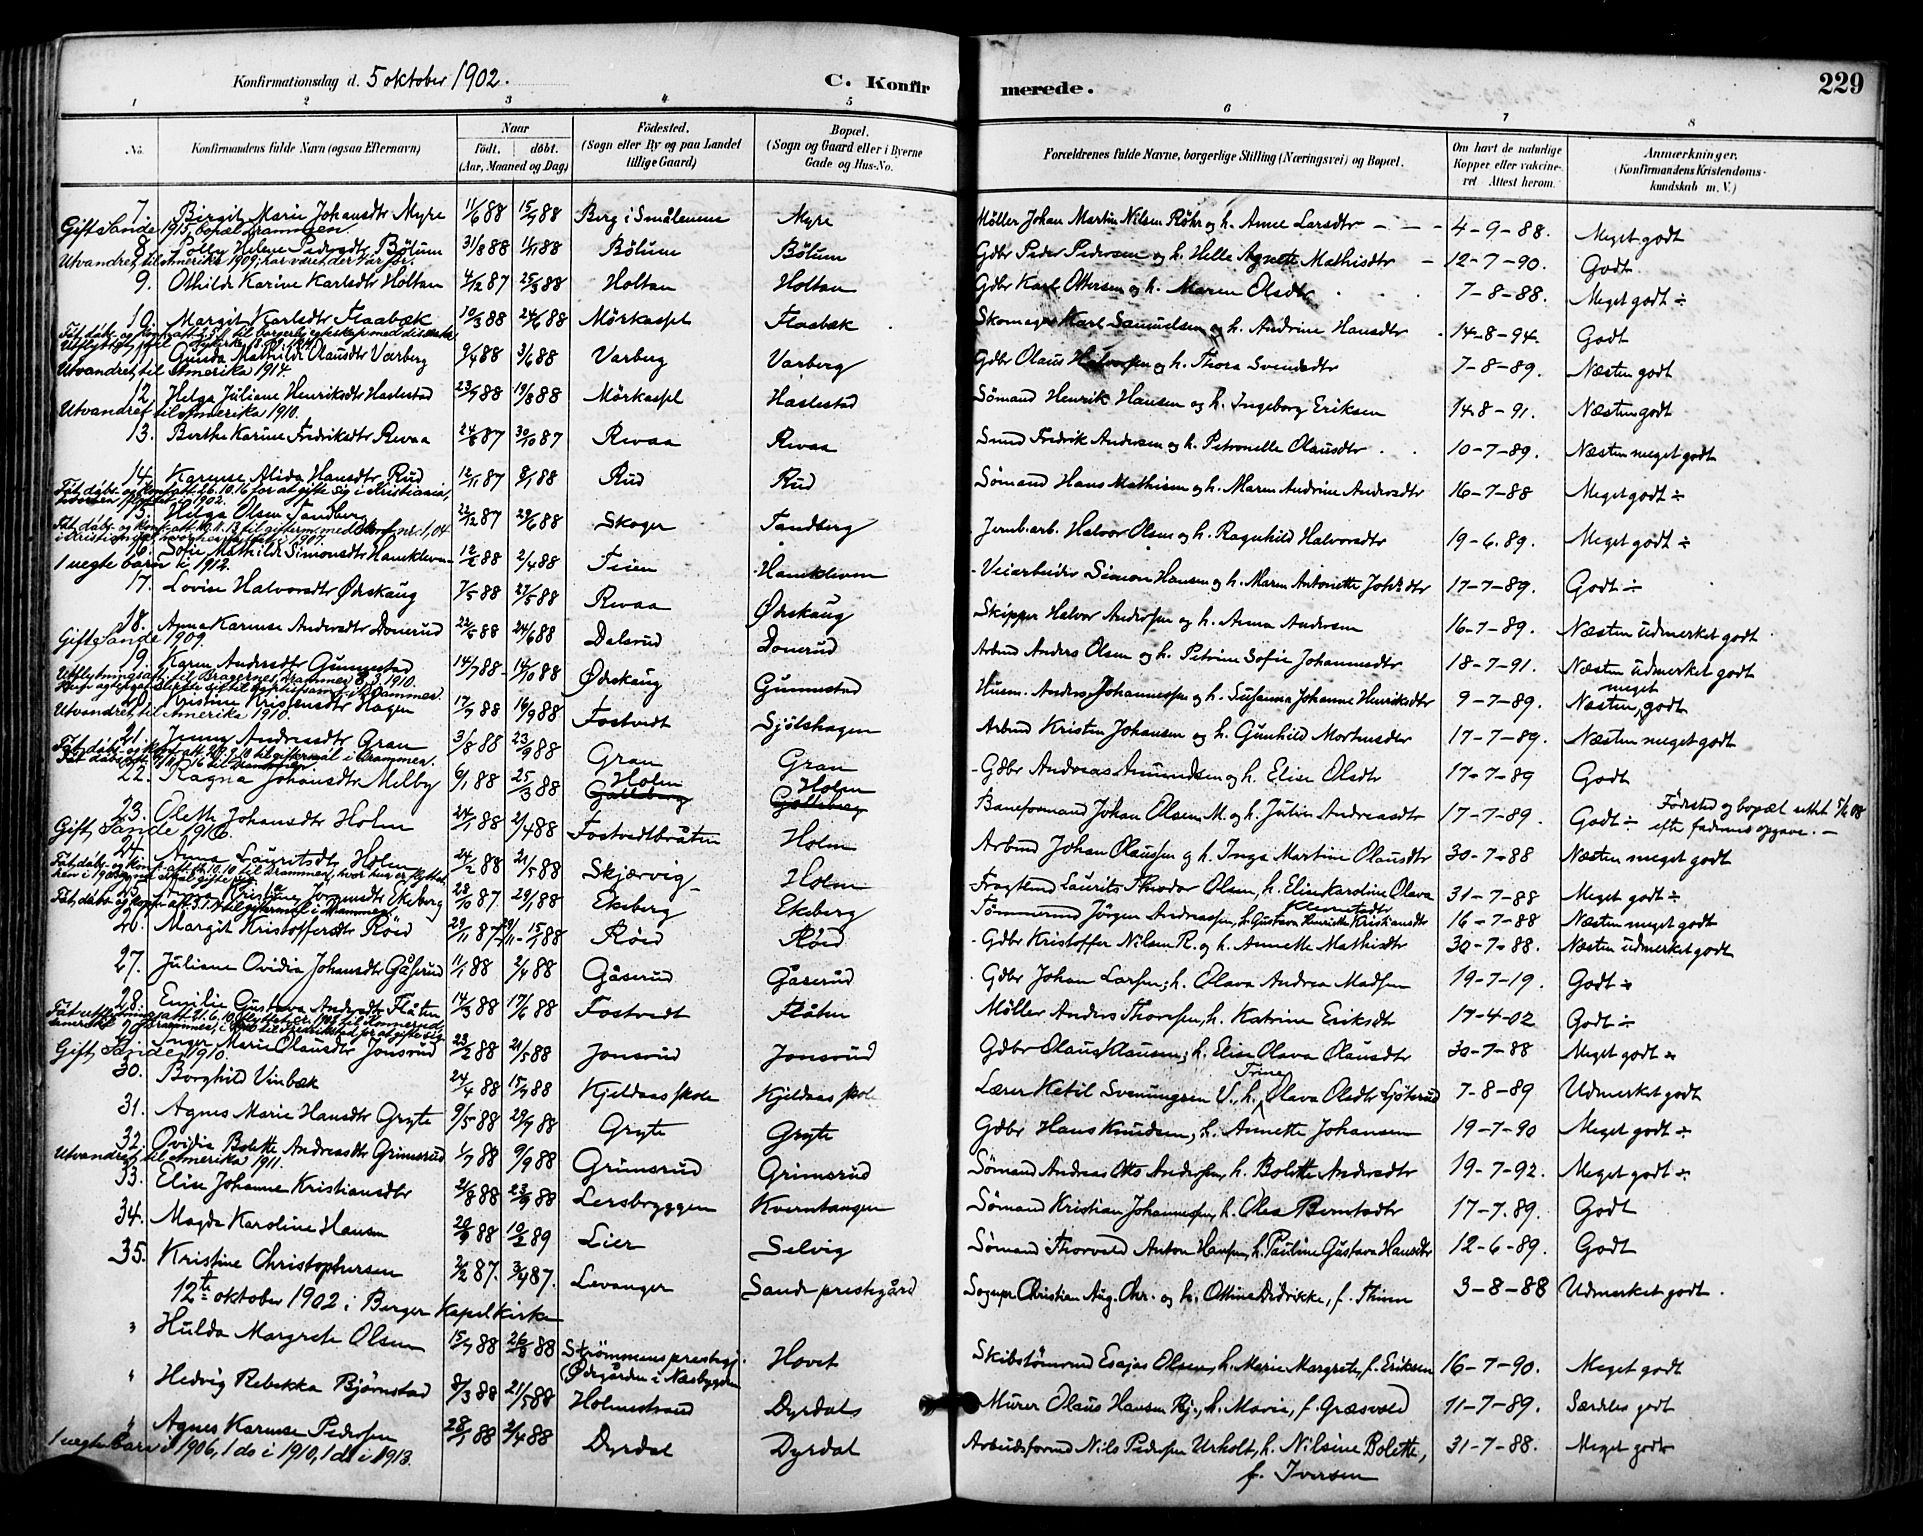 Konfirmationsdag d. 5 oktober 1902. C. Konfirmerede. 229
1 2 3 4 5 6 7 8
No. Konfirmandens fulde Navn (ogsaa Efternavn) Naar födt. döbt. (Aar, Maaned og Dag) Födested. (Sogn eller By og paa Landet tillige Gaard) Bopæl. (Sogn og Gaard eller i Byerne Gade og Hus-No. Forældrenes fulde Navne, borgerlige Stilling (Næringsvei) og Bopæl. Om havt de naturlige Kopper eller vaccineret Attest herom. Anmærkninger. (Konfirmandens Kristendomskundskab m. V.)
7. Birgit Marie Johansdtr Myre 11/6 88 15/7 88 Berg i Smålenene Myre Møller Johan Martin Nilsen Røhr og h. Anne Larsdtr 4-9-88. Meget godt
Gift Sande 1915, bopæl Drammen.
8. Polly Helene Pedersdtr Bølum 31/8 88 1/11 88 Bølum Bølum Gdbr Peder Pedersen og h. Helle Agnette Mathisdtr 12-7-90. Godt
Utvandret til Amerika 1909; har været der 4 år før.
9. Othilde Karine Karlsdtr Holtan 4/12 87 25/3 88 Holtan Holtan Gdbr Karl Ottersen og h. Maren Olsdtr 7-8-88. Meget godt ÷
10. Margit Karlsdtr Flaabæk 10/3 88 24/6 88 Mörkaspl Flaabæk Skomager Karl Samuelsen og h. Andrine Hansdtr 14-8-94. Godt
11. Gunda Mathilde Olausdtr Varberg 9/4 88 3/6 88 Varberg Varberg Gdbr Olaus Halvorsen og h. Thora Svendsdtr 7-8-89. Næsten godt
Utvandret til Amerika 1914.
12. Helga Juliane Henriksdtr Haslestad 23/7 88 19/8 88 Mörkaspl Haslestad Sømand Henrik Hansen og h. Ingeborg Eriksen 14-8-91. Næsten godt
Utvandret til Amerika 1910.
13. Berthe Karine Fredriksdtr Revaa 24/8 87 30/10 87 Revaa Revaa Smed Fredrik Andersen og h. Petronelle Olausdtr 10-7-89. Næsten meget godt
14. Karense Alida Hansdtr Rud 12/11 87 8/1 88 Rud Rud Sømand Hans Mathisen og h. Maren Andrine Andersdtr 16-7-88 Meget godt ÷
Fåt dåbs- og konf.att. 26.10.16 for at gifte sig i Kristiania,
15. Helga Olsen Sandberg 22/12 87 29/6 88 Skoger Sandberg Jernb.arb. Halvor Olsen og h. Ragnhild Halvorsdtr 19-6-89. Meget godt ÷
16. Sofie Mathilde Simonsdtr Hanekleven 12/2 88 2/4 88 Feien Hanekleven Veiarbeider Simon Hansen og h. Maren Antonette Johsdtr 17-7-89. Godt ÷
1 uegte barn i 1912.
17. Lovise Halvorsdtr Ødskaug 7/5 88 27/5 88 Revaa Ødskaug Skipper Halvor Andersen og h. Anna Andersen 16-7-89. Næsten udmerket godt
18. Anna Karense Andersdtr Donerud 22/5 88 24/6 88 Dalsrud Donerud Arbmd Anders Olsen og h. Petrine Sofie Johannesdtr 18-7-91. Næsten udmerket godt
Gift Sande 1909.
19. Karen Andersdtr Gunnestad 14/7 88 14/10 88 Ødskaug Gunnestad Husm. Anders Johannessen og h. Susanna Johanne Henriksdtr 9-7-89. Næsten meget godt
Utflytningsatt. til Bragernes, Drammen 8.3.1910.
20. Kristine Kristensdtr Hagen 17/7 88 16/9 88 Fostvedt Sjølshagen Arbmd Kristen Johansen og h. Gunhild Morthensdtr 17-7-89. Næsten meget godt
Utvandret til Amerika 1910.
21. Jenny Andreasdtr Gran 3/8 88 23/9 88 Gran Gran Gdbr Andreas Amundsen og h. Elise Olsdtr 17-7-89 Godt
22. Ragna Johansdtr Melby 6/1 88 25/3 88 Holm Galleberg Holm Galleberg Baneformand Johan Olsen M. og h. Julie Andreasdtr 17-7-89. Godt ÷ Fødested og bopæl rettet 5/12 08 efter faderens opgave.
23. Oleth Johansdtr Holm 24/1 88 2/4 88 Fostvedtbråten Holm Arbmd Johan Olaussen og h. Inga Martine Olausdtr 30-7-88 Næsten meget godt
Gift, Sande 1916.
24. Anna Lauritsdtr Holm 24/2 88 21/5 88 Skjærvig Holm Fragtemd Laurits Theodor Olsen, h. Elise Karoline Olava 31-7-88 Meget godt ÷
25. Anna Jørgensdtr Ekeberg 28/10 87. 29/1 88 Ekeberg Ekeberg Tömmermd Jörgen Andreassen, h. Gustava Henriette Kristiansdtr 16-7-88 Næsten meget godt
26. Margit Kristoffersdtr Röed 29/11 87 15/1 88 Röed Röed Gdbr Kristoffer Nilsen R. og h. Annette Mathisdtr 30-7-88. Næsten udmerket godt
27. Juliane Ovidia Johansdtr Gåserud 11/1 88 2/4 88 Gåserud Gåserud Gdbr Johan Larsen; h. Olava Andrea Madsen 19-7-19. Godt ÷
28. Emilie Gustava Andersdtr Flåten 14/3 88 17/6 88 Fostvedt Flåten Møller Anders Thoresen, h. Katrine Eriksdtr 17-4-02 Godt ÷
29. Inger Marie Olausdtr Jonsrud 23/2 88 21/5 88 Jonsrud Jonsrud Gdbr Olaus Klausen; h. Elise Olava Olausdtr 30-7-88 Meget godt ÷
Gift, Sande 1910.
30. Borghild Vinbæk 24/4 88 15/7 88 Kjeldaas skole Kjeldaas skole Lærer Ketil Svenungsen V., h. Trine Olava Olsdtr Sjöterud 7-8-89 Udmerket godt
31. Agnes Marie Hansdtr Gryte 9/5 88 29/7 88 Gryte Gryte Gdbr Hans Knudsen, h. Annette Johansen 19-7-90 Meget godt ÷
32. Ovidia Bolette Andreasdtr Grimsrud 1/7 88 9/9 88 Grimsrud Grimsrud Sømand Andreas Otto Andersen, h. Bolette Andersdtr 19-7-92. Meget godt ÷
Utvandret til Amerika 1911.
33. Elise Johanne Kristiansdtr 21/8 88 23/9 88 Lersbryggen Kverntangen Sømand Kristian Johannessen, h. Olea Berntsdtr 17-7-89. Godt
34. Magda Karoline Hansen 20/9 88 10/2 89 Lier Selvig Sømand Thorvald Anton Hansen, h. Pauline Gustava Hansdtr 12-6-89. Godt
35. Kristine Christophersen 2/2 87. 3/4 87. Levanger Sande prestegård Sognepr. Christian Aug. Chr. og h. Ottine Didrikke, f. Thinn 3-8-88 Udmerket godt.
12te oktober 1902 i Berger Kapelkirke
" Hulda Margrete Olsen 15/7 88 26/8 88 Strømmens prestegj. (Ødegården i Næsbygden Hovet Skibstömrmd Esajas Olsen, h. Marie Margrete, f. Eriksen 16-7-90. Meget godt
" Hedvig Rebekka Björnstad 8/3 88 21/5 88 Holmestrand Dyrdals Murer Olaus Hansen Bj., h. Marie, f. Græsvold 11-7-89. Særdles godt
" Agnes Karense Pedersen 28/1 88 2/4 88 Dyrdal Dyrdal Arbeidsformd Nils Pedersen Urholt, h. Nilsine Bolette, f. Iversen 31-7-88. Meget godt
1 uegte barn i 1906, 1 do i 1910, 1 do i 1913.